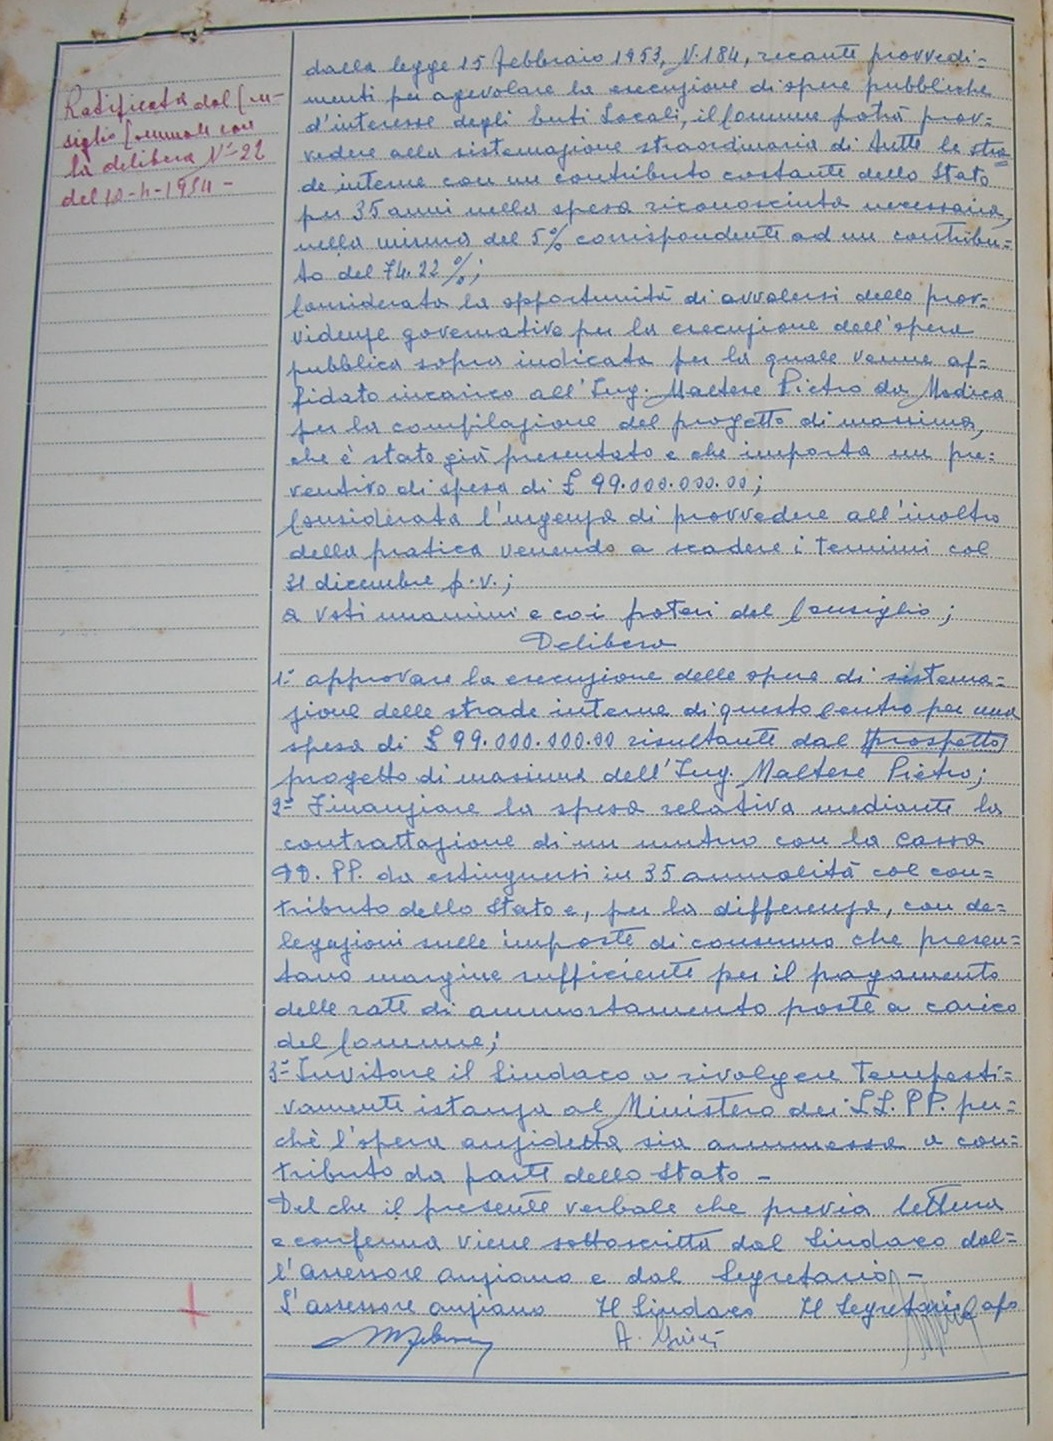 Ratificata dal Con-
siglio Comunale con
la delibera Nº 22
del 12-4-1954-
dalla legge 15 febbraio 1953, N. 184, recante provvedi=
menti per agevolare la esecuzione di opere pubbliche
d'interesse degli Enti Locali, il Comune potrà prov=
vedere alla sistemazione straordinaria di tutte le stra
de interne con un contributo costante dello Stato
per 35 anni nella spesa riconosciuta necessaria,
nella misura del 5% corrispondente ad un contribu=
to del 74.22%;
Considerata la opportunità di avvalersi delle prov=
videnze governative per la esecuzione dell'opera
pubblica sopra indicata per la quale venne af=
fidato incarico all'Ing. Maltese Pietro da Modica
per la compilazione del progetto di massima,
che è stato già presentato e che importa un pre=
ventivo di spesa di £ 99.000.000.00;
Considerata l'urgenza di provvedere all'inoltro
della pratica venendo a scadere i termini col
31 dicembre p.v.;
a voti unanimi e coi poteri del Consiglio;
Delibera
1º approvare la esecuzione delle opere di sistema=
zione delle strade interne di questo centro per una
spesa di £ 99.000.000.00 risultante dal prospetto
progetto di massima dell'Ing. Maltese Pietro;
2º Finanziare la spesa relativa mediante la
contrattazione di un mutuo con la Cassa
DD. PP. da estinguersi in 35 annualità col con=
tributo dello Stato e, per la differenza, con de=
legazioni sulle imposte di consumo che presen=
tano margine sufficiente per il pagamento
delle rate di ammortamento poste a carico
del Comune;
3º Invitare il Sindaco a rivolgere tempesti=
vamente istanza al Ministero dei LL. PP. per=
chè l'opera anzidetta sia ammessa a con=
tributo da parte dello Stato -
Del che il presente verbale che previa lettura
e conferma viene sottoscritto dal Sindaco dal=
l'assessore anziano e dal Segretario, -
L'assessore anziano Il Sindaco Il Segretario
A.